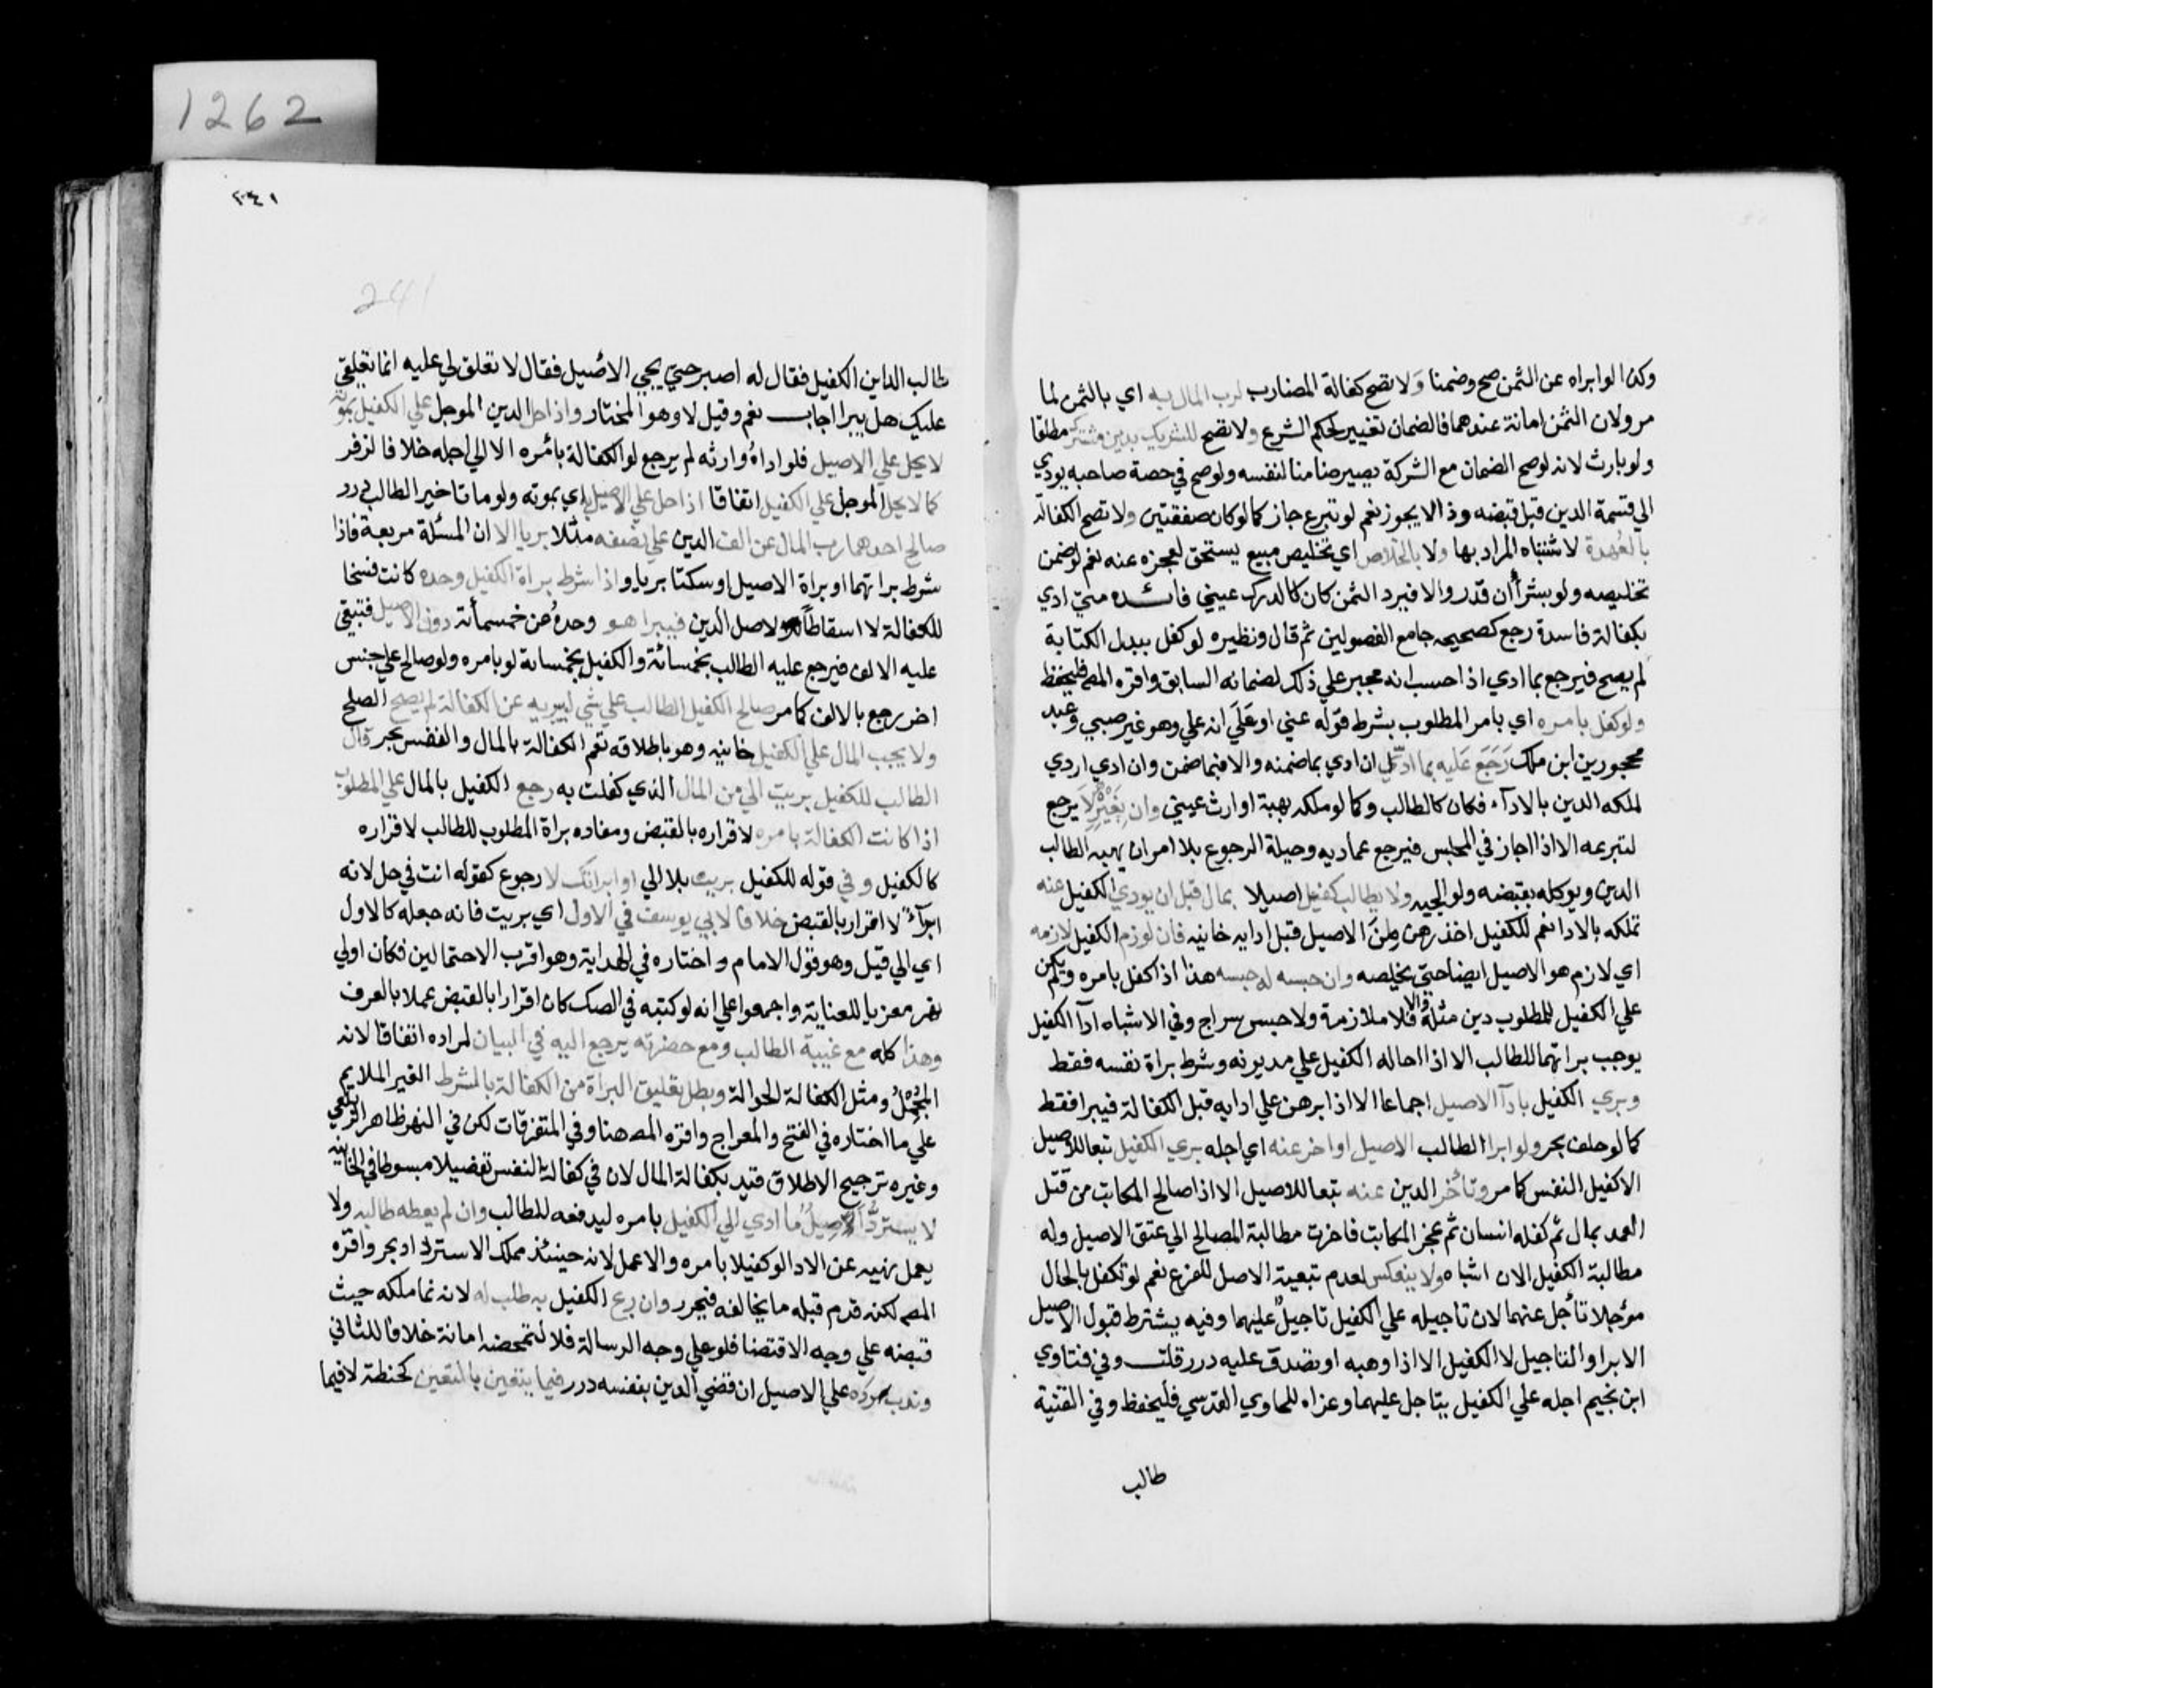 وكذا لو ابراه عن الثمن صح وضمنا ولا تصح كفالة المضارب لرب المال به اي بالثمن لما
مر ولان الثمن امانة عندهما فالضمان تغيير لحكم الشرع ولا تصح للشريك بدين مشترك مطلقا
ولو بارث لانه لو صح الضمان مع الشركة يصير ضامنا لنفسه ولو صح في حصة صاحبه يودي
الي قسمة الدين قبل قبضه وذا لا يجوز نعم لو تبرع جاز كما لو كان صفقتين ولا تصح الكفالة
بالعهدة لاشتباه المراد بها ولا بالخلاص اي تخليص مبيع يستحق لعجزه عنه نعم لو ضمن
تخليصه ولو بشرأ ان قدر والا فيرد الثمن كان كالدرك عيني فائده متي ادي
بكفالة فاسدة رجع كصحيحه جامع الفصولين ثم قال ونظيره لو كفل ببدل الكتابة
لم يصح فيرجع بما ادي اذا حسب انه مجبر علي ذلك لضمانه السابق واقره المص فليحفظ
ولو كفل بامره اي بامر المطلوب بشرط قوله عني او علي انه علي وهو غير صبي وعبد
محجورين ابن ملك رجع عليه بما ادي ان ادي بما ضمنه والا فبما ضمن وان ادي اردي
لملكه الدين بالادآء فكان كالطالب وكما لو ملكه بهبة او ارث عيني وان بغيره لا يرجع
لتبرعه الا اذا اجاز في المجلس فيرجع عماديه وحيلة الرجوع بلا امر ان يهبه الطالب
الدين ويوكله بقبضه ولوالجيه ولا يطالب كفيل اصيلا بمال قبل ان يودي الكفيل عنه
تملكه بالادا نعم للكفيل اخذ رهن من الاصيل قبل ادايه خانيه فان لوزم الكفيل لازمه
اي لازم هو الاصيل ايضا حتي يخلصه وان حبسه له حبسه هذا اذا كفل بامره ولم يكن
علي الكفيل للمطلوب دين مثله والا فلا ملازمة ولا حبس سراج وفي الاشباه ادآ الكفيل
يوجب براتهما للطالب الا اذا احاله الكفيل علي مديونه وشرط براة نفسه فقط
وبري الكفيل بادآ الاصيل اجماعا الا اذا برهن علي ادايه قبل الكفالة فيبرا فقط
كما لو حلف بحر ولو ابرا الطالب الاصيل او اخر عنه اي اجله بري الكفيل تبعا للاصيل
الا كفيل النفس كما مر وتأخر الدين عنه تبعا للاصيل الا اذا صالح المكاتب من قتل
العمد بمال ثم كفله انسان ثم عجز المكاتب فاخرت مطالبة المصالح الي عتق الاصيل وله
مطالبة الكفيل الان اشباه ولا ينعكس لعدم تبعية الاصل للفرع نعم لو تكفل بالحال
مؤجلا تأجل عنهما لان تاجيله علي الكفيل تاجيل عليهما وفيه يشترط قبول الاصيل
الابرا والتاجيل لا الكفيل الا اذا وهبه او تصدق عليه درر قلت وفي فتاوي
ابن نجيم اجله علي الكفيل يتاجل عليهما وعزاه للحاوي القدسي فليحفظ وفي القنية
طالب
1262
٢٤١
241
طالب الداين الكفيل فقال له اصبر حتي يجي الاصيل فقال لا تعلق لي عليه انما تعلقي
عليك هل يبرا اجاب نعم وقيل لا وهو المختار واذا حل الدين الموجل علي الكفيل بموته
لا يحل علي الاصيل فلو اداه وارثه لم يرجع لو الكفالة بامره الا الي اجله خلافا لزفر
كما لا يحل الموجل علي الكفيل اتفاقا اذا حل علي الاصيل به اي بموته ولو ماتا خير الطالب درر
صالح احدهما رب المال عن الف الدين علي نصفه مثلا بريا الا ان المسئلة مربعة فاذا
شرط براتهما او براة الاصيل او سكتا بريا واذا شرط براة الكفيل وحده كانت فسخا
للكفالة لا اسقاطا لاصل الدين فيبرا هو وحده عن خمسمأئة دون الاصيل فتبقي
عليه الالف فيرجع عليه الطالب بخمسمائة والكفيل بخمسمائة لو بامره ولو صالح علي جنس
اخر رجع بالالف كما مر صالح الكفيل الطالب علي شي ليبريه عن الكفالة لم يصح الصلح
ولا يجب المال علي الكفيل خانيه وهو باطلاقه تعم الكفالة بالمال والنفس بحر قال
الطالب للكفيل بريت الي من المال الذي كفلت به رجع الكفيل بالمال علي المطلوب
اذا كانت الكفالة بامره لاقراره بالقبض ومفاده براة المطلوب للطالب لاقراره
كالكفيل وفي قوله للكفيل بريت بلا الي او ابراتك لا رجوع كقوله انت في حل لانه
ابرآء لا اقرار بالقبض خلافا لابي يوسف في الاول اي بريت فانه جعله كالاول
اي الي قيل وهو قول الامام واختاره في الهداية وهو اقرب الاحتمالين فكان اولي
نهر معزيا للعناية واجمعوا علي انه لو كتبه في الصك كان اقرارا بالقبض عملا بالعرف
وهذا كله مع غيبة الطالب ومع حضرته يرجع اليه في البيان لمراده اتفاقا لانه
المجمل ومثل الكفالة الحوالة وبطل تعليق البراة من الكفالة بالشرط الغير الملايم
علي ما اختاره في الفتح والمعراج واقره المص هنا وفي المتفرقات لكن في النهر ظاهر الزيلعي
وغيره ترجيح الاطلاق قيد بكفالة المال لان في كفالة النفس تفصيلا مبسوطا في الخانيه
لا يسترد الاصيل ما ادي الي الكفيل بامره ليدفعه للطالب وان لم يعطه طالبه ولا
يعمل نهيه عن الادا لو كفيلا بامره والا عمل لانه حينئذ يملك الاسترداد بحر واقره
المص لكنه قدم قبله ما يخالفه فيحرر وان ربح الكفيل به طلب له لانه نما ملكه حيث
قبضه علي وجه الاقتضا فلو علي وجه الرسالة فلا لتمحضه امانة خلافا للثاني
وندب رده علي الاصيل ان قضي الدين بنفسه درر فيما يتعين بالتعيين كحنطة لا فيما